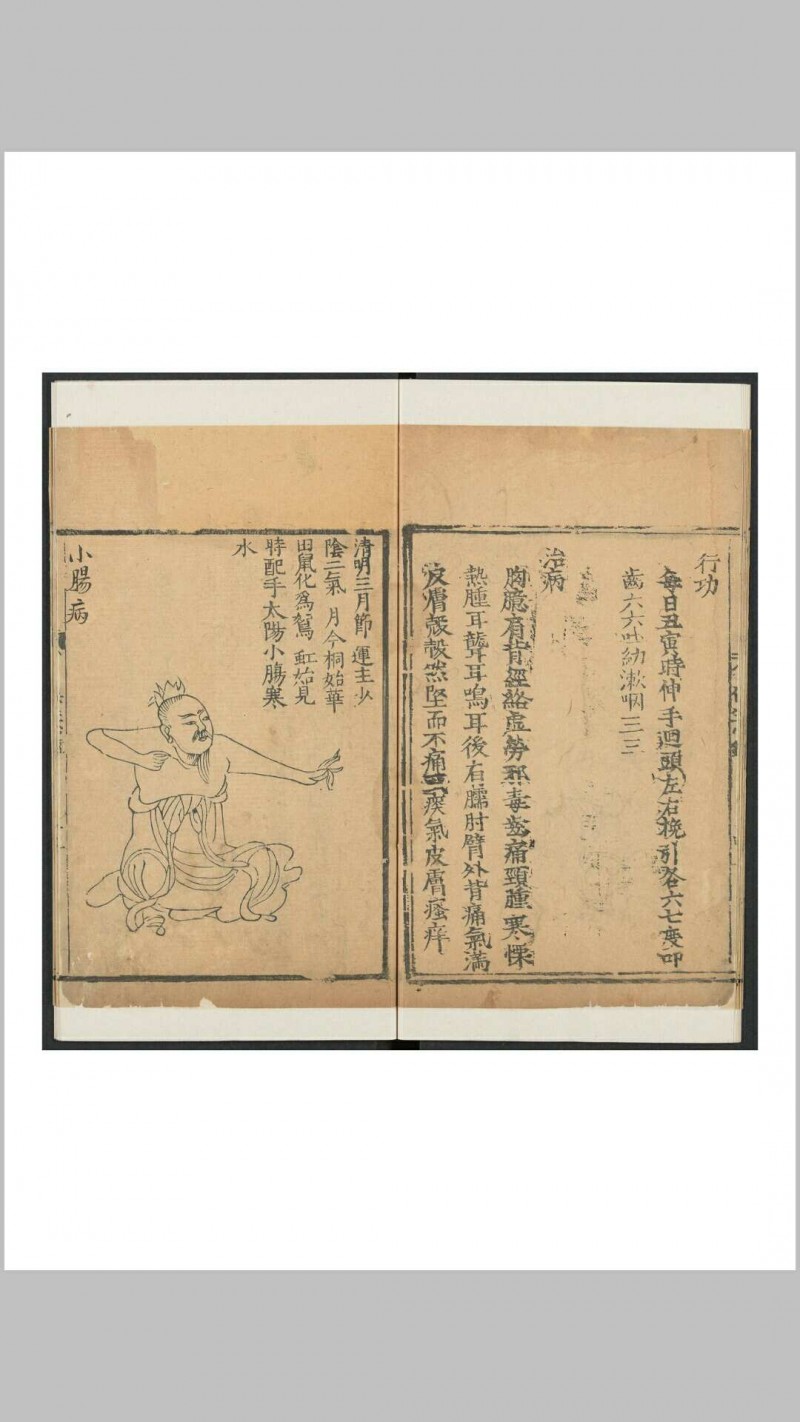 行功
每日丑寅時伸手迴頭左右挽引各六七度叩
齒六六吐納漱咽三三
治病
胸臆肩背經絡虛勞邪毒齒痛頸腫寒慄
熱腫耳聾耳鳴耳後右臑肘臂外背痛氣滿
皮膚殼殼然堅而不痛
痰氣皮膚瘙痒
清明三月節 運主少
陰二氣 月令桐始華
田鼠化爲鴽 虹始見
時配手太陽小腸寒
水
小腸病